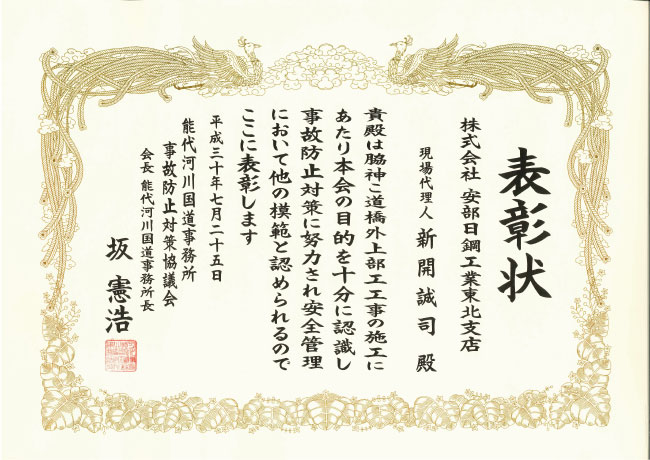 表彰状
株式会社 安部日鋼工業東北支店
現場代理人 新開誠司 殿
貴殿は脇神こ道橋外上部工工事の施工に
あたり本会の目的を十分に認識し
事故防止対策に努力され安全管理
において他の模範と認められるので
ここに表彰します
平成三十年七月二十五日
能代河川国道事務所
事故防止対策協議会
会長 能代河川国道事務所長
坂 憲浩